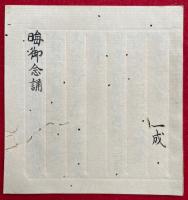 晦御念誦
一成